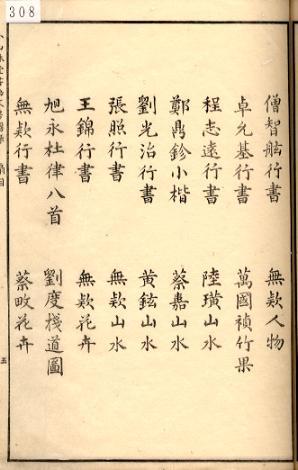 308
僧智舷行書
無欵人物
卓允基行書
萬國禎竹果
程志遠行書
陸璜山水
鄭鼎鉁小楷
蔡嘉山水
劉光治行書
黃鉉山水
張照行書
無欵山水
王錦行書
無欵花卉
旭永杜律八首
劉度棧道圖
無欵行書
蔡㽘花卉
五